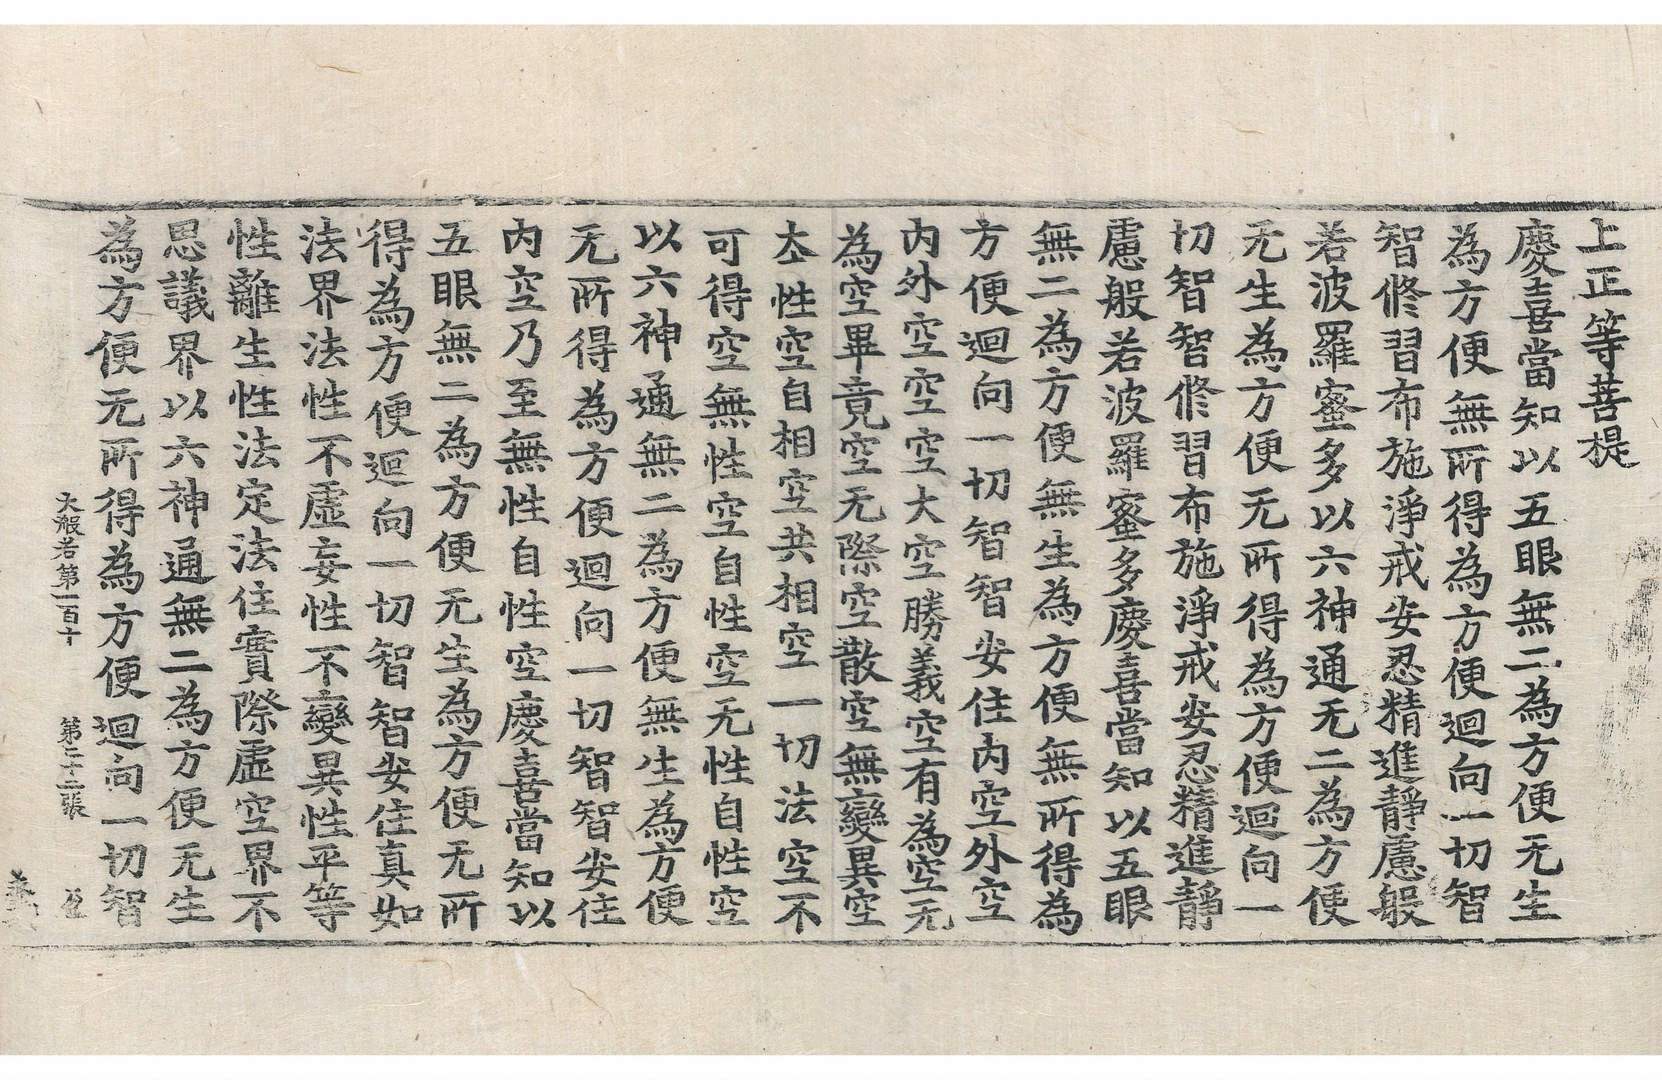 上正等菩提
慶喜當知以五眼無二為方便无生
為方便無所得為方便迴向一切智
智修習布施淨戒安忍精進靜慮般
若波羅蜜多以六神通无二為方便
无生為方便无所得為方便迴向一
切智智修習布施淨戒安忍精進靜
慮般若波羅蜜多慶喜當知以五眼
無二為方便無生為方便無所得為
方便迴向一切智智安住內空外空
內外空空空大空勝義空有為空无
為空畢竟空无際空散空無變異空
本性空自相空共相空一切法空不
可得空無性空自性空无性自性空
以六神通無二為方便無生為方便
无所得為方便迴向一切智智安住
內空乃至無性自性空慶喜當知以
五眼無二為方便无生為方便无所
得為方便迴向一切智智安住真如
法界法性不虛妄性不變異性平等
性離生性法定法住實際虛空界不
思議界以六神通無二為方便无生
為方便无所得為方便迴向一切智
大般若第一百十 第二十二張